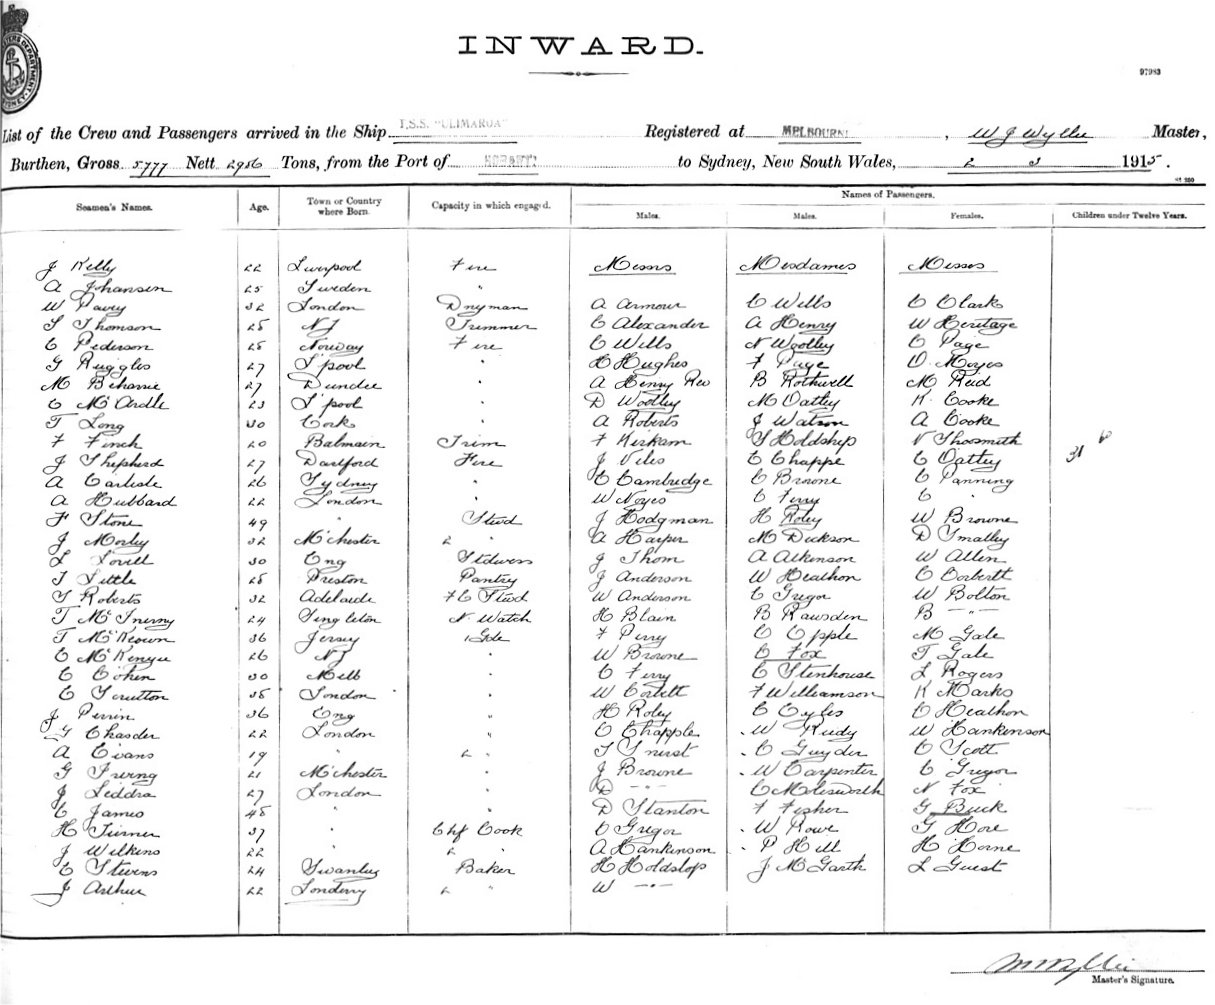 INWARD.
97983
List of the Crew and Passengers arrived in the Ship T.S.S. "ULIMAROA" Registered at MELBOURNE, W J Wyllie Master,
Burthen, Gross 5777 Nett 2956 Tons, from the Port of HOBART to Sydney, New South Wales, 2 3 1915.
Seamen's Names. Age. Town or Country where Born. Capacity in which engaged. Names of Passengers.
Males. Males. Females. Children under Twelve Years.
J Kelly 22 Liverpool Fire Messrs Mesdames Misses
A Johansen 25 Sweden "
W Pavey 32 London Dnyman A Armour C Wills C Clark
S Thomson 25 NZ Trimmer C Alexander A Henry W Heritage
C Pederson 28 Norway Fire C Wills N Woolley C Page
G Ruggles 27 L'pool " H Hughes F Page D Moyes
M Biharrie 27 Dundee " A Henry Rev B Rothwell M Reid
C McArdle 23 L'pool " D Woolley M Oatley K Cooke
T Long 30 Cork " A Roberts J Watson A Cooke
F Finch 20 Balmain Trim F Kirkam S Holdship N Shoosmith
J Shepherd 27 Dartford Fire J Viles E Chapple C Oattey 31
A Carlisle 26 Sydney " C Cambridge C Browne C Panning
A Hubbard 22 London " W Noyes C Ferry C "
F Stone 49 " Stwd J Hodgman H Roley W Browne
J Morley 32 M'chester " A Harper M Dickson D Smalley
L Lovell 30 Eng Stdwess J Thom A Atkinson W Allen
T Little 28 Preston Pantry J Anderson W Heathon C Corbett
S Roberts 32 Adelaide F C Stwd W Anderson C Gregor W Bolton
T McInerny 24 Singleton N. Watch H Blain B Rawsden B "
T McKeown 36 Jersey F Perry C Opple M Gale
C McKenzie 26 NZ " W Browne C Fox T Gale
C Cohen 30 Melb " C Ferry C Stenhouse L Rogers
C Scrutton 38 London " W Corbett F Williamson K Marks
J Perrin 36 Eng " H Roley C Oyles C Heathon
G Chasder 22 London " C Chapple W Rudy W Hankinson
A Evans 19 " " T Guyder C Scott
G Irving 21 M'chester " J Browne W Carpenter C Gregor
J Leddra 27 London " D " C Molesworth N Fox
C James 45 " D Stanton F Fisher G Buck
H Turner 37 " Chf Cook C Gregor W Rowe G Hore
J Wilkins 22 " " A Hankinson P Hill H Horne
C Stevens 24 Swanley Baker H Holdslop J McGarth L Guest
J Arthur 22 Londerry " W "
Master's Signature.